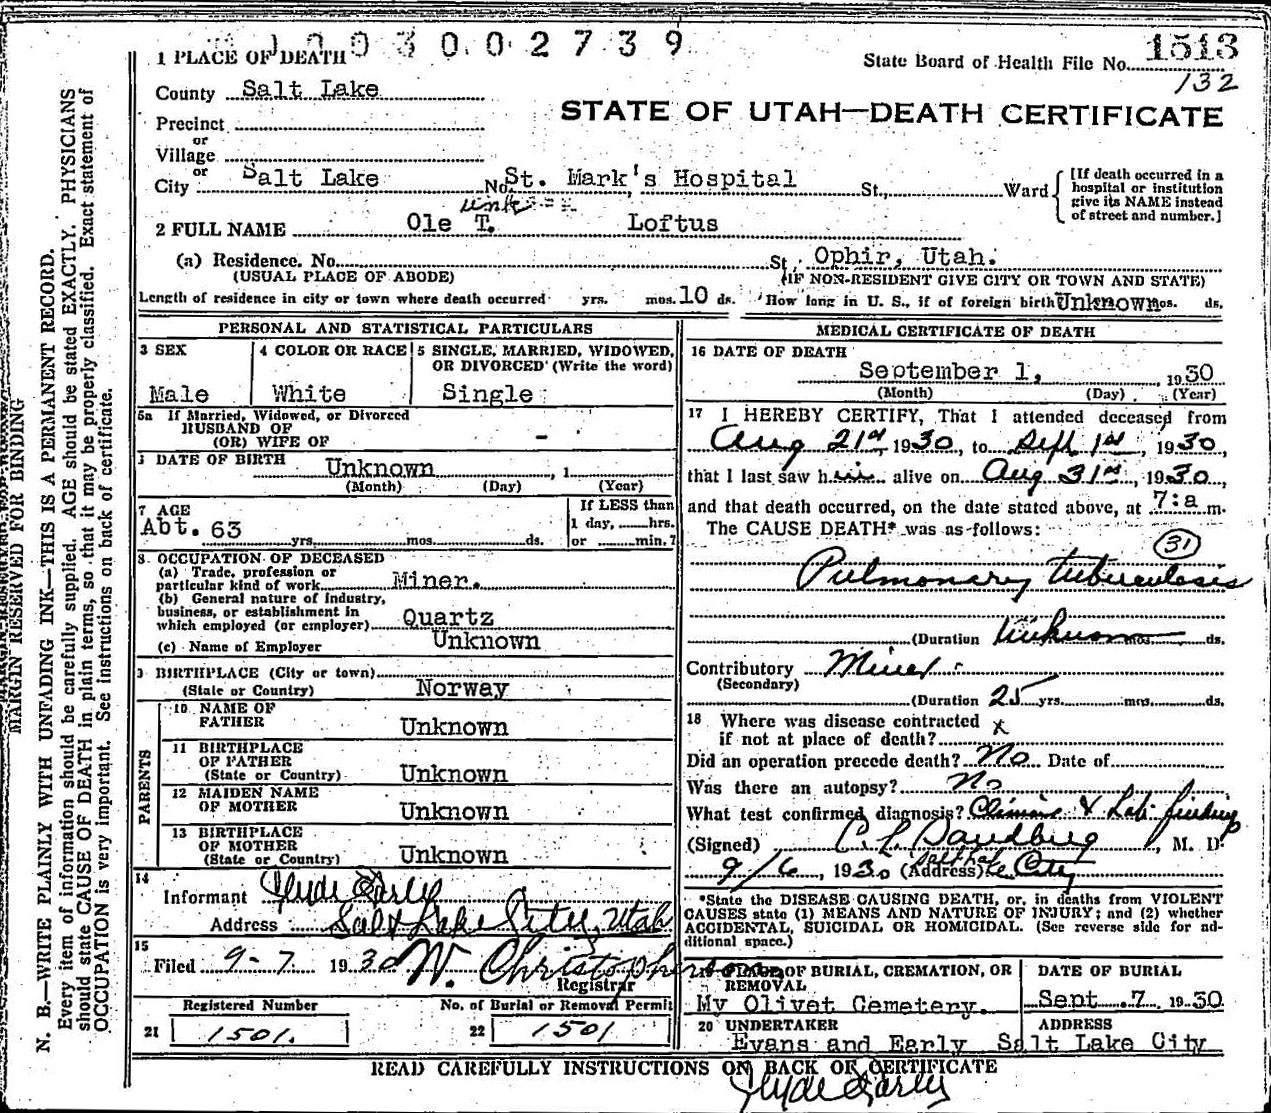 1003002739
1 PLACE OF DEATH
State Board of Health File No. 1513
132
County Salt Lake
STATE OF UTAH—DEATH CERTIFICATE
Precinct
or
Village
or
City Salt Lake No. St. Mark's Hospital St., Ward
[If death occurred in a
hospital or institution
give its NAME instead
of street and number.]
2 FULL NAME Ole T. Loftus
(a) Residence. No. St. Ophir, Utah.
(USUAL PLACE OF ABODE) (IF NON-RESIDENT GIVE CITY OR TOWN AND STATE)
Length of residence in city or town where death occurred yrs. mos. 10 ds. How long in U. S., if of foreign birth Unknown mos. ds.
PERSONAL AND STATISTICAL PARTICULARS
3 SEX
Male
4 COLOR OR RACE
White
5 SINGLE, MARRIED, WIDOWED,
OR DIVORCED (Write the word)
Single
5a If Married, Widowed, or Divorced
HUSBAND OF
(OR) WIFE OF -
DATE OF BIRTH Unknown , 1
(Month) (Day) (Year)
7 AGE
Abt. 63 yrs. mos. ds.
If LESS than
1 day, hrs.
or min.?
8 OCCUPATION OF DECEASED
(a) Trade, profession or
particular kind of work Miner.
(b) General nature of industry,
business, or establishment in
which employed (or employer) Quartz
(c) Name of Employer Unknown
9 BIRTHPLACE (City or town)
(State or Country) Norway
PARENTS
10 NAME OF
FATHER Unknown
11 BIRTHPLACE
OF FATHER
(State or Country) Unknown
12 MAIDEN NAME
OF MOTHER Unknown
13 BIRTHPLACE
OF MOTHER
(State or Country) Unknown
14
Informant Clyde Early
Address Salt Lake City, Utah
15
Filed 9-7 1930 W. Christopherson
Registrar
Registered Number No. of Burial or Removal Permit
21 1501. 22 1501
MEDICAL CERTIFICATE OF DEATH
16 DATE OF DEATH
September 1, 1930
(Month) (Day) (Year)
17 I HEREBY CERTIFY, That I attended deceased from
Aug 21st, 1930, to Sept 1st, 1930,
that I last saw him alive on Aug 31st, 1930,
and that death occurred, on the date stated above, at 7:a m.
The CAUSE DEATH* was as follows:
31
Pulmonary tuberculosis
(Duration Unknown mos. ds.
Contributory Miner
(Secondary)
(Duration 25 yrs. mos. ds.
18 Where was disease contracted
if not at place of death? x
Did an operation precede death? No Date of
Was there an autopsy? No
What test confirmed diagnosis? Clinical & Lab. finding
(Signed) C. L. Sandberg, M. D.
9/6, 1930 (Address) Salt Lake City
*State the DISEASE CAUSING DEATH, or, in deaths from VIOLENT
CAUSES state (1) MEANS AND NATURE OF INJURY; and (2) whether
ACCIDENTAL, SUICIDAL OR HOMICIDAL. (See reverse side for ad-
ditional space.)
19 PLACE OF BURIAL, CREMATION, OR
REMOVAL
Mt Olivet Cemetery.
DATE OF BURIAL
Sept. 7 1930
20 UNDERTAKER ADDRESS
Evans and Early Salt Lake City
READ CAREFULLY INSTRUCTIONS ON BACK OF CERTIFICATE
Clyde Early
MARGIN RESERVED FOR BINDING
N. B.—WRITE PLAINLY WITH UNFADING INK—THIS IS A PERMANENT RECORD.
Every item of information should be carefully supplied. AGE should be stated EXACTLY. PHYSICIANS
should state CAUSE OF DEATH in plain terms, so that it may be properly classified. Exact statement of
OCCUPATION is very important. See instructions on back of certificate.